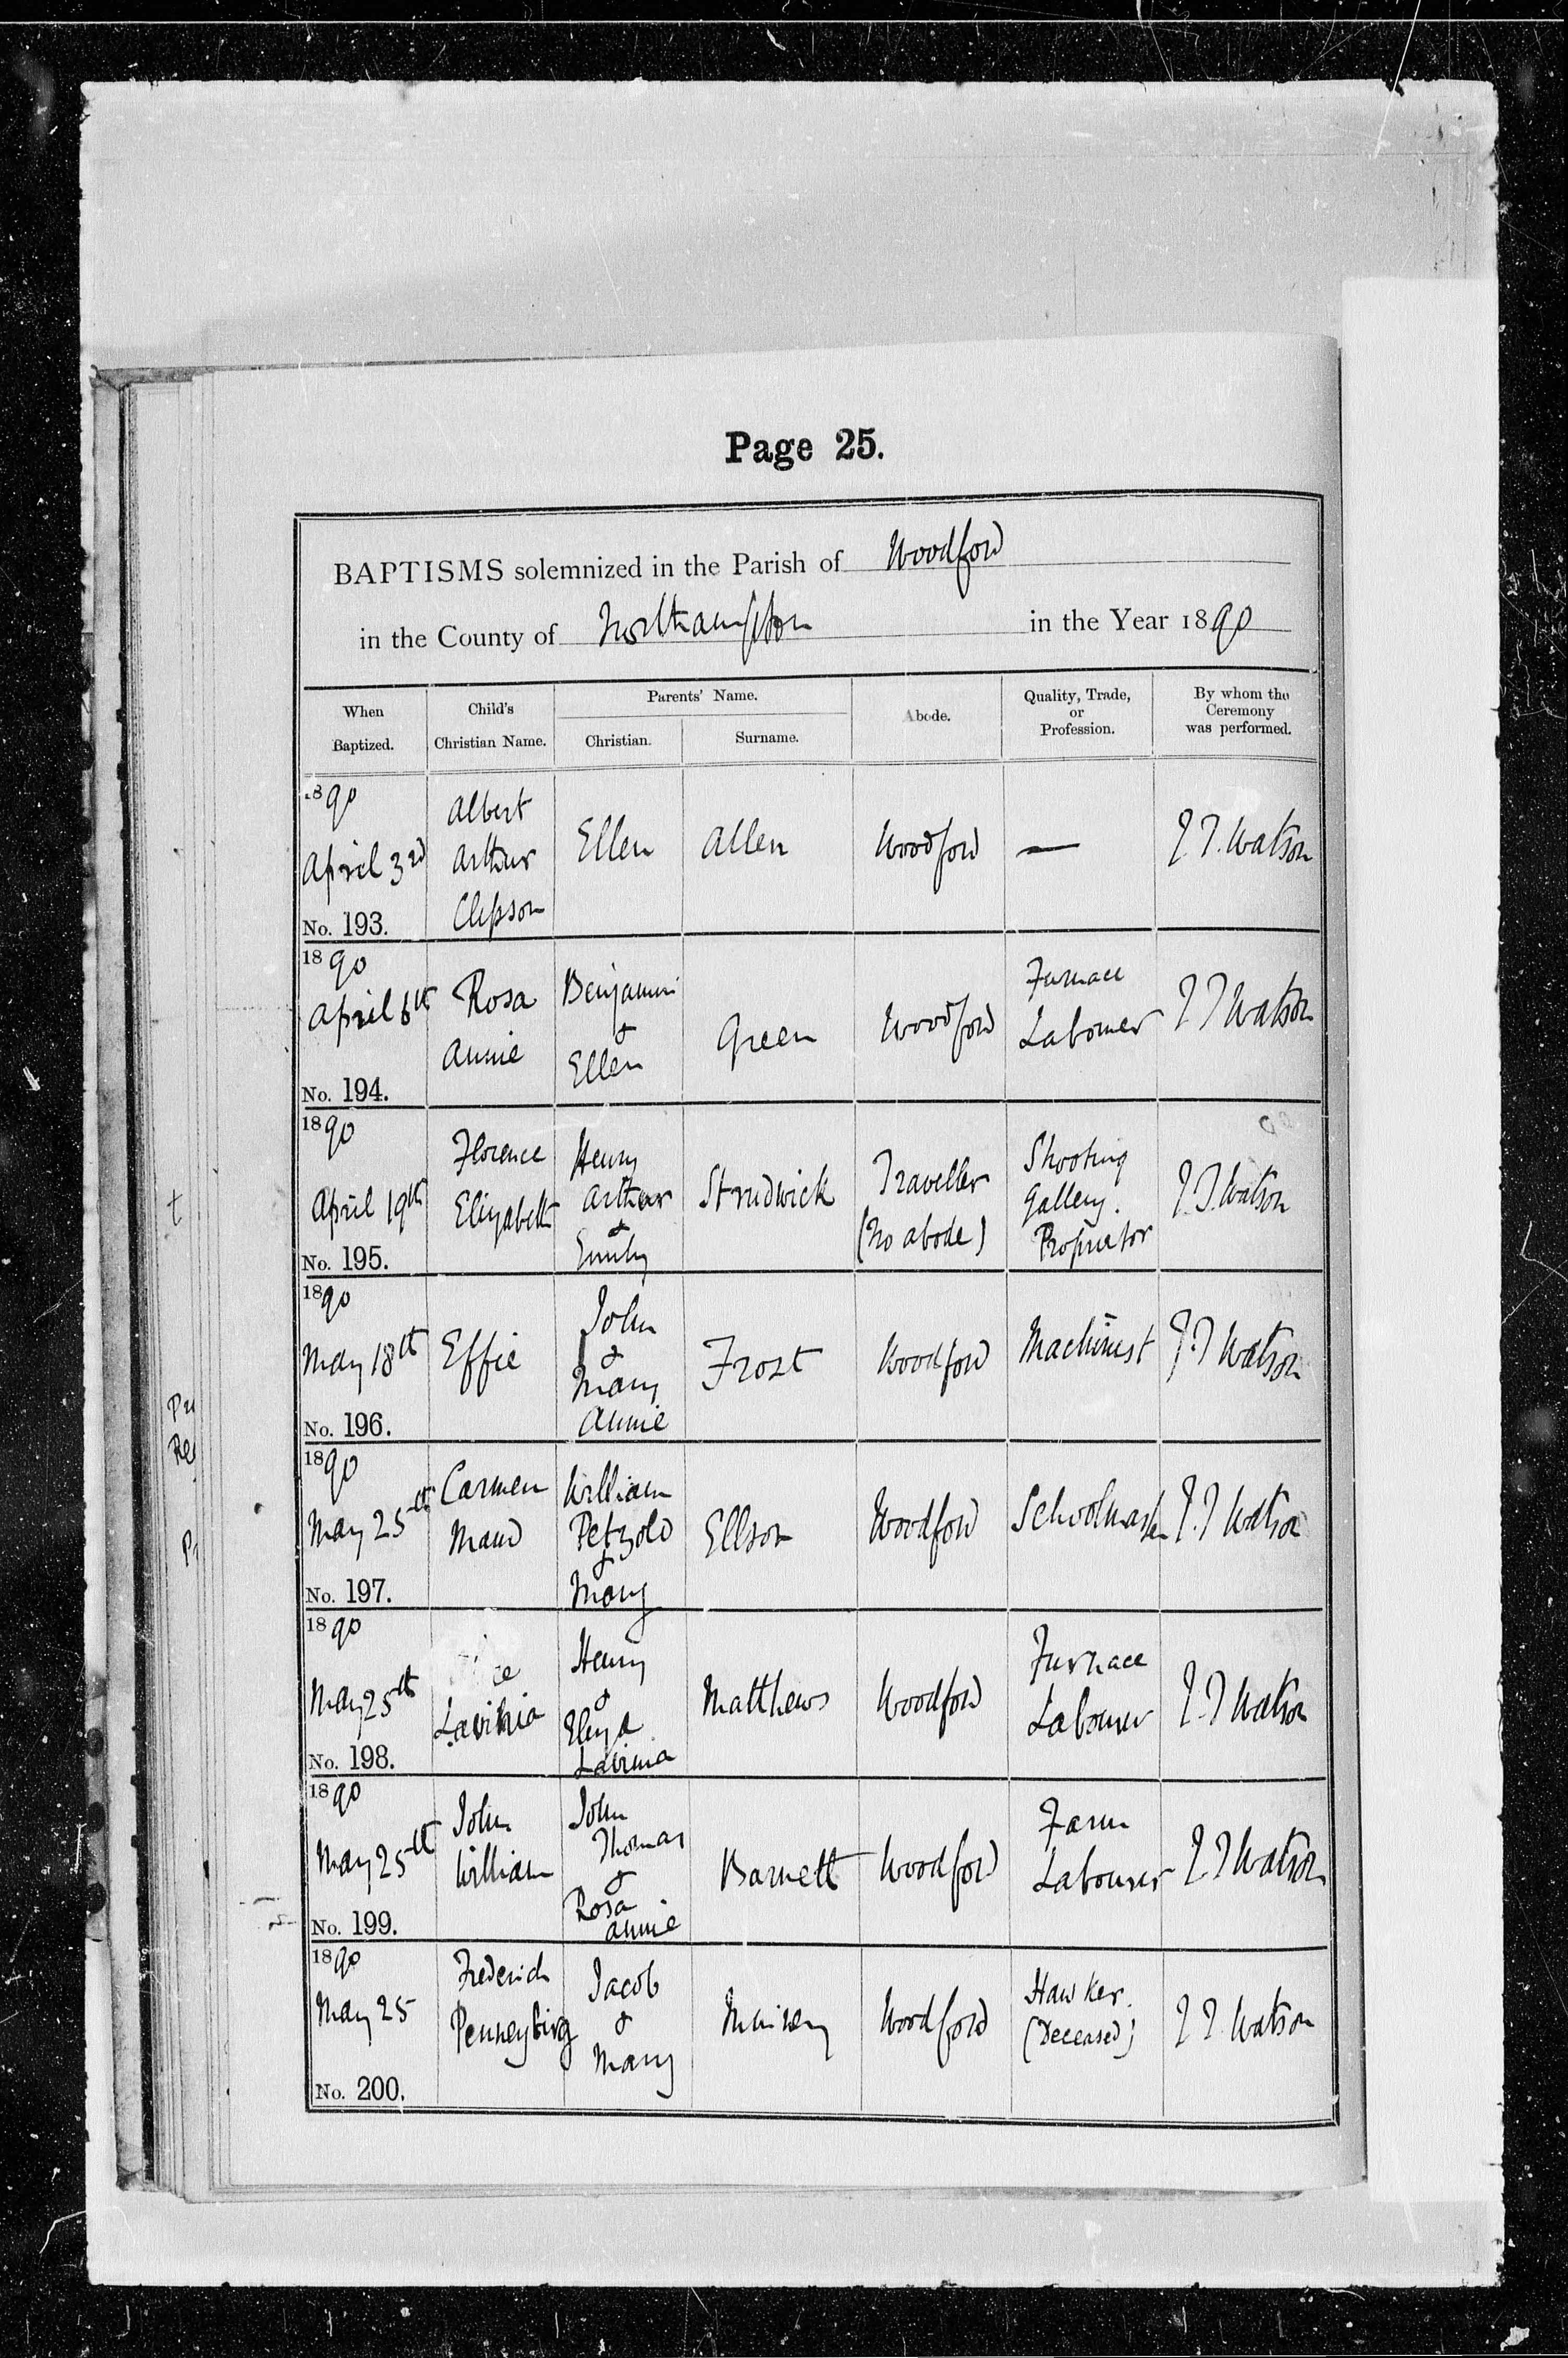 Page 25.
BAPTISMS solemnized in the Parish of Woodford
in the County of Northampton in the Year 1890
When Baptized.
Child's Christian Name.
Parents' Name.
Christian.
Surname.
Abode.
Quality, Trade, or Profession.
By whom the Ceremony was performed.
1890
April 3rd
No. 193.
Albert
Arthur
Clipson
Ellen
Allen
Woodford
—
J. T. Watson
1890
April 6th
No. 194.
Rosa
Annie
Benjamin
&
Ellen
Green
Woodford
Furnace
Labourer
J T Watson
1890
April 19th
No. 195.
Florence
Elizabeth
Henry
Arthur
&
Emily
Strudwick
Traveller
(No abode)
Shooting
Gallery.
Proprietor
J. T. Watson
1890
May 18th
No. 196.
Effie
John
&
Mary
Annie
Frost
Woodford
Machinist
J. T Watson
1890
May 25th
No. 197.
Carmen
Maud
William
Petzold
&
Mary
Ellson
Woodford
Schoolmaster
J. T Watson
1890
May 25th
No. 198.
Lavinia
Henry
&
Eliza
Lavinia
Matthews
Woodford
Furnace
Labourer
J. T Watson
1890
May 25th
No. 199.
John
William
John
Thomas
&
Rosa
Annie
Barnett
Woodford
Farm
Labourer
J. T Watson
1890
May 25
No. 200.
Frederick
Jacob
&
Mary
Woodford
Hawker.
(Deceased)
J. T. Watson